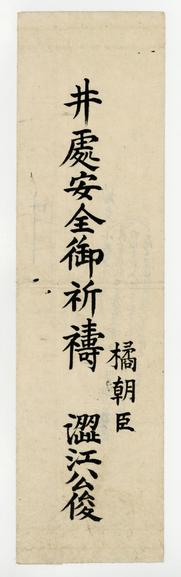 井處安全御祈禱
橘朝臣
澀江公俊